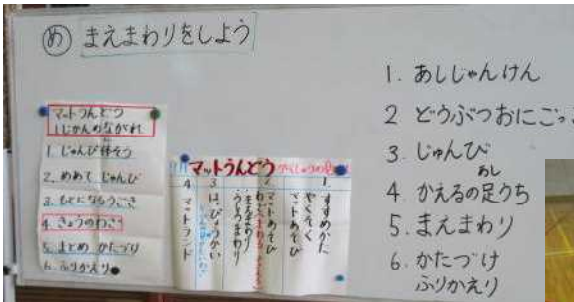 め まえまわりをしよう
マットうんどう
1じかんのながれ
1. じゅんび体そう
2. めあて じゅんび
3. もとになるうごき
4. きょうのわざ
5. まとめ かたづけ
6. ふりかえり
マットうんどう
1 すすめかた
やくそく
マットあそび
2 マットあそび
まえまわり
うしろまわり
3 はっぴょうかい
4 マットランド
1. あしじゃんけん
2 どうぶつおにごっこ
3. じゅんび
4 かえるの足うち
あし
5. まえまわり
6. かたづけ
ふりかえり